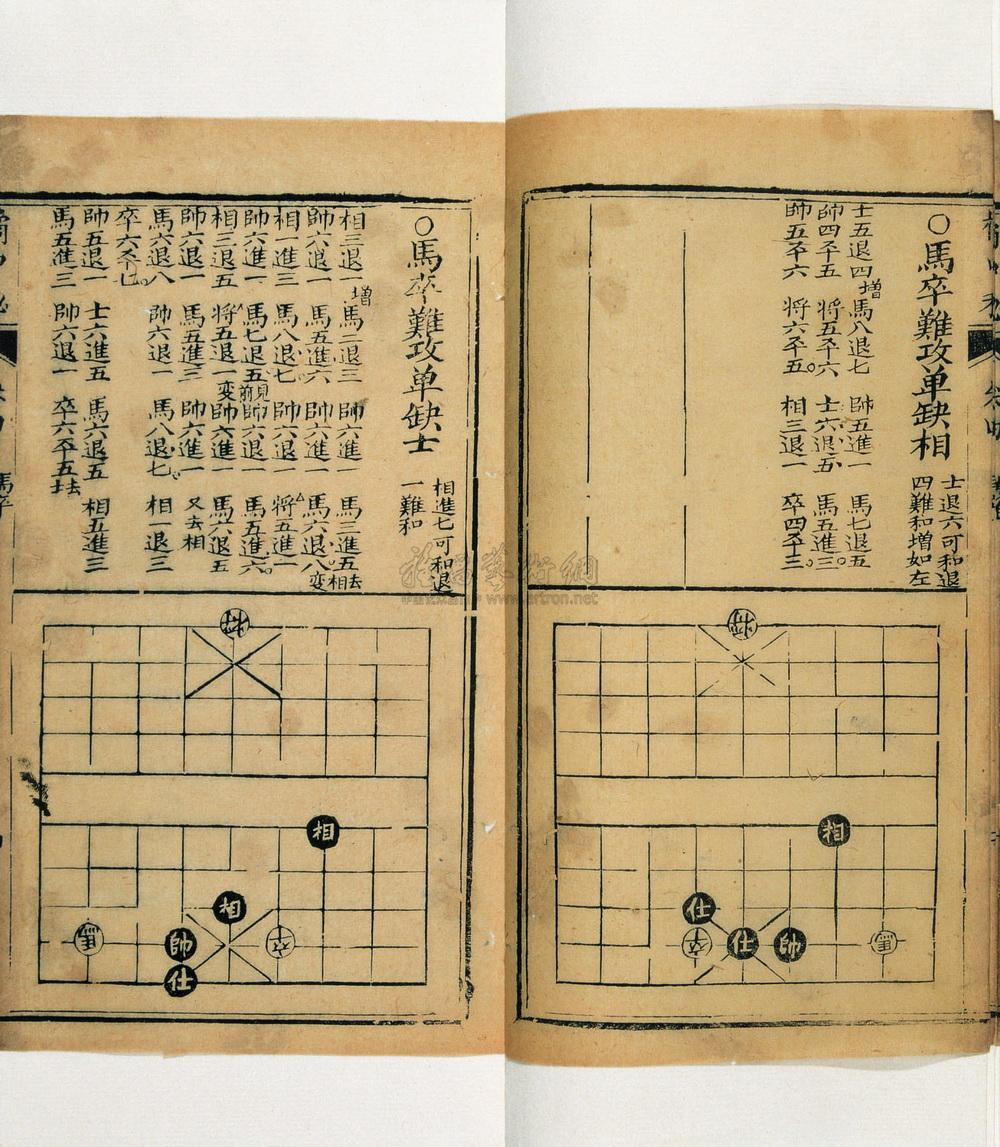 ○馬卒難攻单缺相
士退六可和退
四難和增如左
士五退四增 馬八退七 帥五進一 馬七退五
帥四平五 将五平六 士六退五 馬五進三
帥五平六 将六平五 相三退一 卒四平三
将
相
仕
卒 仕 帥 馬
○馬卒難攻单缺士
相進七可和退
一難和
相三退一增 馬二退三 帥六進一 馬三進五去相
帥六退一 馬五進六 帥六進一 馬六退八变
相一進三 馬八退七 帥六進一 将五進一
帥六進一 馬七退五見前 帥六退一 馬五進六
相三退五 将五退一变 帥六進一 馬六退五
帥六退一 馬五進三 帥六進一 又去相
馬六退八 帥六退一 馬八退七 相一退三
卒六平七
帥五退一 士六進五 馬六退五 相五進三
馬五進三 帥六退一 卒六平五去士
馬卒
将
相
相
馬 帥 卒
仕
雅昌藝術網
www.artron.net